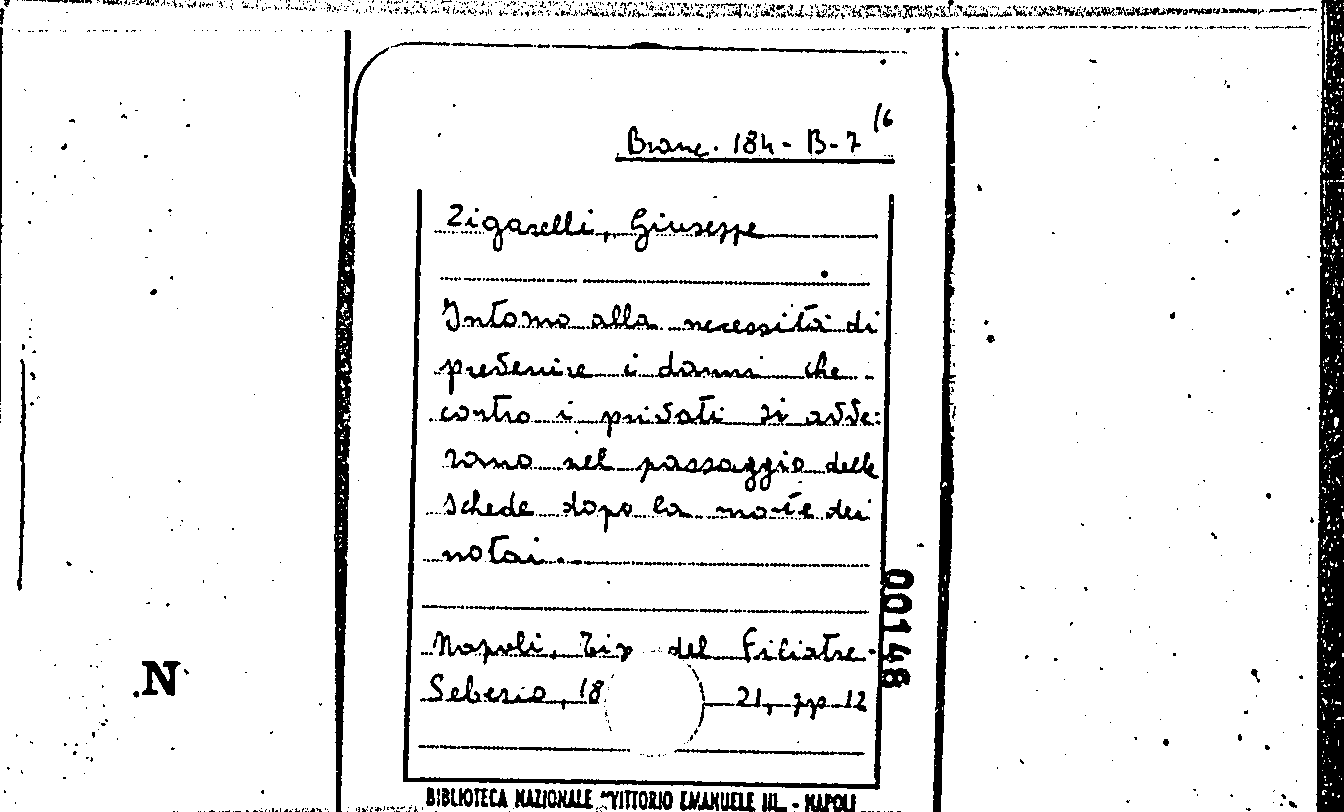 Branc. 184 - B - 7 /6
Zigarelli, Giuseppe
Intorno alla necessità di
prevenire i danni che
contro i privati si avve:
rano nel passaggio delle
schede dopo la morte dei
notai.
Napoli, Tip del Filiatre-
Sebezio, 18 21, pp 12
00148
N
BIBLIOTECA NAZIONALE "VITTORIO EMANUELE III. - NAPOLI